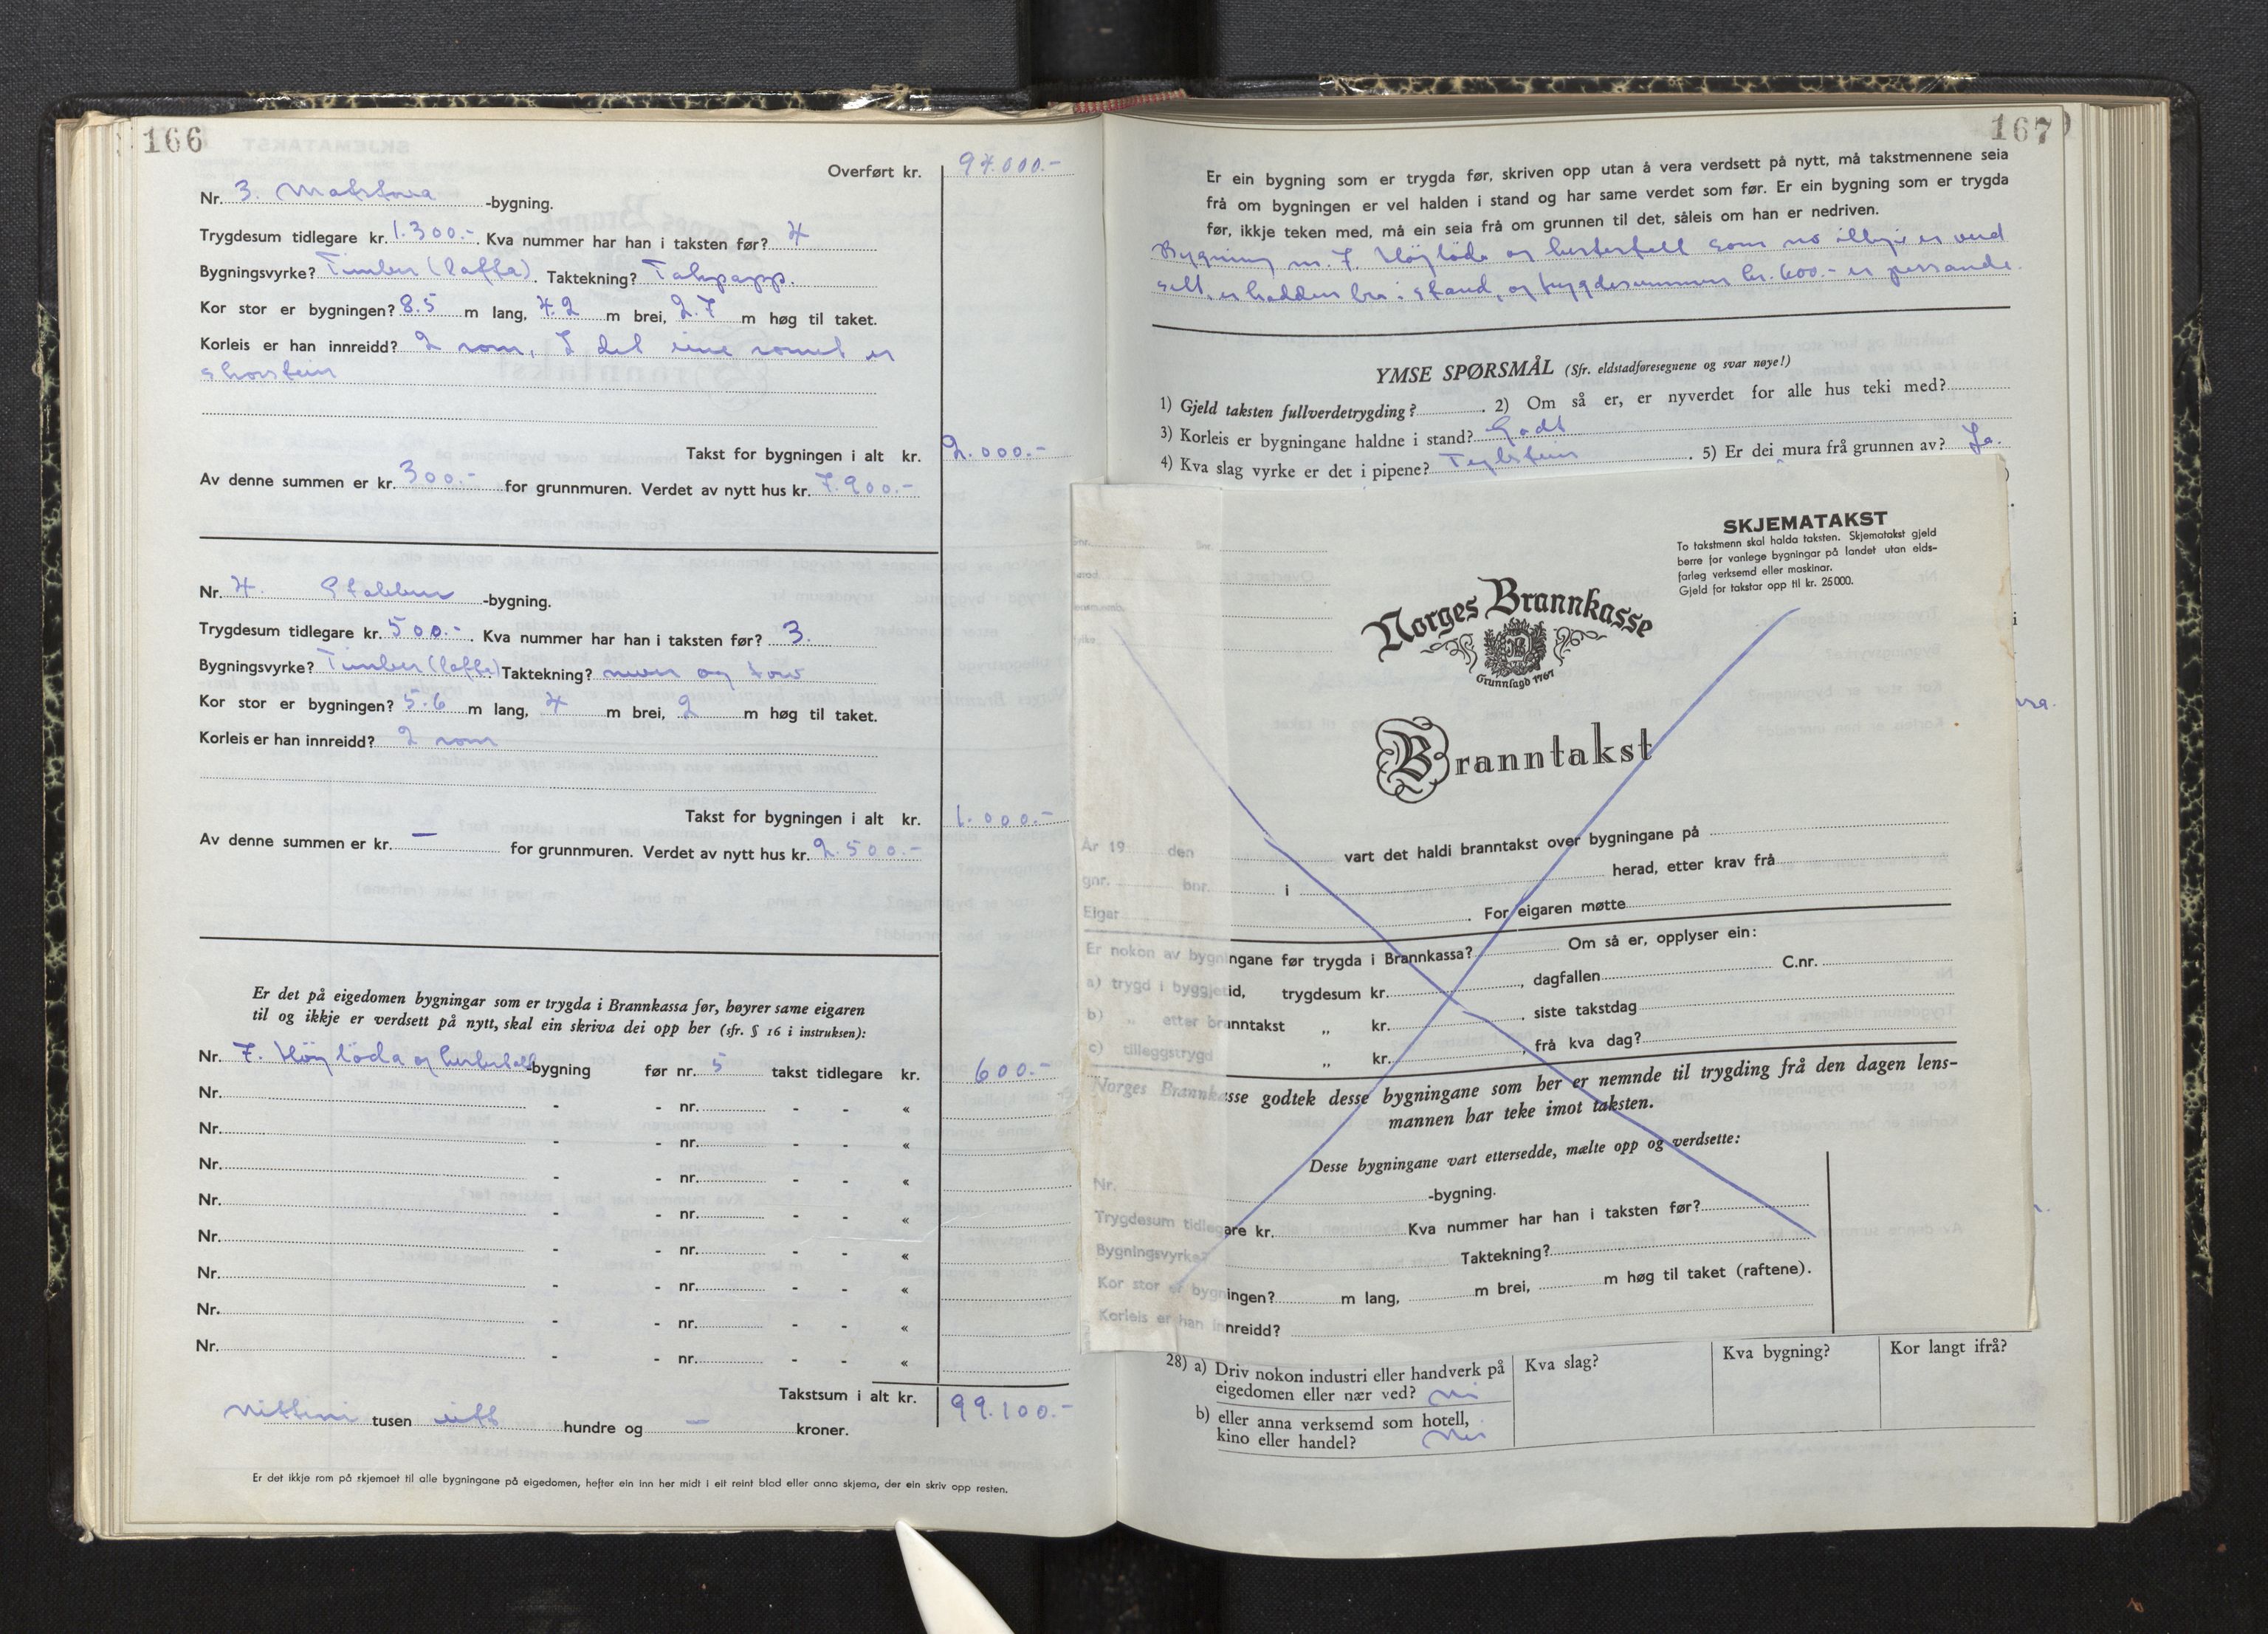 166
Overført kr. 94.000.-
Nr. 3. Matstova -bygning.
Trygdesum tidlegare kr. 1.300.- . Kva nummer har han i taksten før? 4
Bygningsvyrke? Timber (lafta). Taktekning? Takpapp.
Kor stor er bygningen? 8.5 m lang, 4.2 m brei, 2.7 m høg til taket.
Korleis er han innreidd? 2 rom, I det eine romet er
skorstein
Takst for bygningen i alt kr. 2.000.-
Av denne summen er kr. 300.- for grunnmuren. Verdet av nytt hus kr. 7.900.-
Nr. 4. Stabbur -bygning.
Trygdesum tidlegare kr. 500.- . Kva nummer har han i taksten før? 3.
Bygningsvyrke? Timber (lafta) Taktekning? never og torv
Kor stor er bygningen? 5.6 m lang, 4 m brei, 2 m høg til taket.
Korleis er han innreidd? 2 rom
Takst for bygningen i alt kr. 1.000.-
Av denne summen er kr. — for grunnmuren. Verdet av nytt hus kr. 2.500.-
Er det på eigedomen bygningar som er trygda i Brannkassa før, høyrer same eigaren
til og ikkje er verdsett på nytt, skal ein skriva dei opp her (sfr. § 16 i instruksen):
Nr. 7. Höylöda og hestestall -bygning før nr. 5 takst tidlegare kr. 600.-
Nr. - - nr. - - «
Nr. - - nr. - - «
Nr. - - nr. - - «
Nr. - - nr. - - «
Nr. - - nr. - - «
Nr. - - nr. - - «
Nr. - - nr. - - «
Nr. - - nr. - - «
Takstsum i alt kr. 99.100.-
Nittini tusen eitt hundre og — kroner.
Er det ikkje rom på skjemaet til alle bygningane på eigedomen, hefter ein inn her midt i eit reint blad eller anna skjema, der ein skriv opp resten.
167
Er ein bygning som er trygda før, skriven opp utan å vera verdsett på nytt, må takstmennene seia
frå om bygningen er vel halden i stand og har same verdet som før. Er ein bygning som er trygda
før, ikkje teken med, må ein seia frå om grunnen til det, såleis om han er nedriven.
Bygning nr. 7. Höylöda og hestestall som no ikkje er verd
sett, er halden bra i stand, og trygdesummen kr. 600.- er passande.
YMSE SPØRSMÅL (Sfr. eldstadføresegnene og svar nøye!)
1) Gjeld taksten fullverdetrygding? . 2) Om så er, er nyverdet for alle hus teki med?
3) Korleis er bygningane haldne i stand? Godt
4) Kva slag vyrke er det i pipene? Teglstein . 5) Er dei mura frå grunnen av? Ja.
SKJEMATAKST
To takstmenn skal halda taksten. Skjematakst gjeld
berre for vanlege bygningar på landet utan elds-
farleg verksemd eller maskinar.
Gjeld for takstar opp til kr. 25 000.
Gnr. Bnr.
Norges Brannkasse
Grunnlagd 1767
Branntakst
År 19 den vart det haldi branntakst over bygningane på
gnr. bnr. i herad, etter krav frå
Eigar . For eigaren møtte
Er nokon av bygningane før trygda i Brannkassa? Om så er, opplyser ein:
a) trygd i byggjetid, trygdesum kr. , dagfallen C.nr.
b) „ etter branntakst „ kr. , siste takstdag
c) tilleggstrygd „ kr. , frå kva dag?
Norges Brannkasse godtek desse bygningane som her er nemnde til trygding frå den dagen lens-
mannen har teke imot taksten.
Desse bygningane vart ettersedde, mælte opp og verdsette:
Nr. -bygning.
Trygdesum tidlegare kr. Kva nummer har han i taksten før?
Bygningsvyrke? Taktekning?
Kor stor er bygningen? m lang, m brei, m høg til taket (raftene).
Korleis er han innreidd?
28) a) Driv nokon industri eller handverk på eigedomen eller nær ved? Nei Kva slag? Kva bygning? Kor langt ifrå?
b) eller anna verksemd som hotell, kino eller handel? Nei